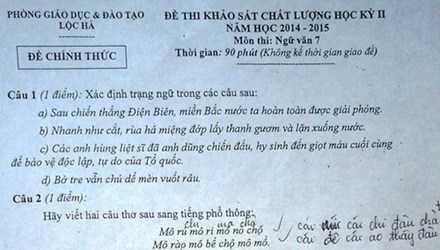 PHÒNG GIÁO DỤC & ĐÀO TẠO
LỘC HÀ
ĐỀ CHÍNH THỨC
ĐỀ THI KHẢO SÁT CHẤT LƯỢNG HỌC KỲ II
NĂM HỌC 2014 - 2015
Môn thi: Ngữ văn 7
Thời gian: 90 phút (Không kể thời gian giao đề)
Câu 1 (1 điểm): Xác định trạng ngữ trong các câu sau:
a) Sau chiến thắng Điện Biên, miền Bắc nước ta hoàn toàn được giải phóng.
b) Nhanh như cắt, rùa há miệng đớp lấy thanh gươm và lặn xuống nước.
c) Các anh hùng liệt sĩ đã anh dũng chiến đấu, hy sinh đến giọt máu cuối cùng
để bảo vệ độc lập, tự do của Tổ quốc.
d) Bờ tre vẫn chú dế mèn vuốt râu.
Câu 2 (1 điểm):
Hãy viết hai câu thơ sau sang tiếng phổ thông:
Mô rú mô ri mô nỏ chộ
Mô rào mô bể chộ mô mồ.